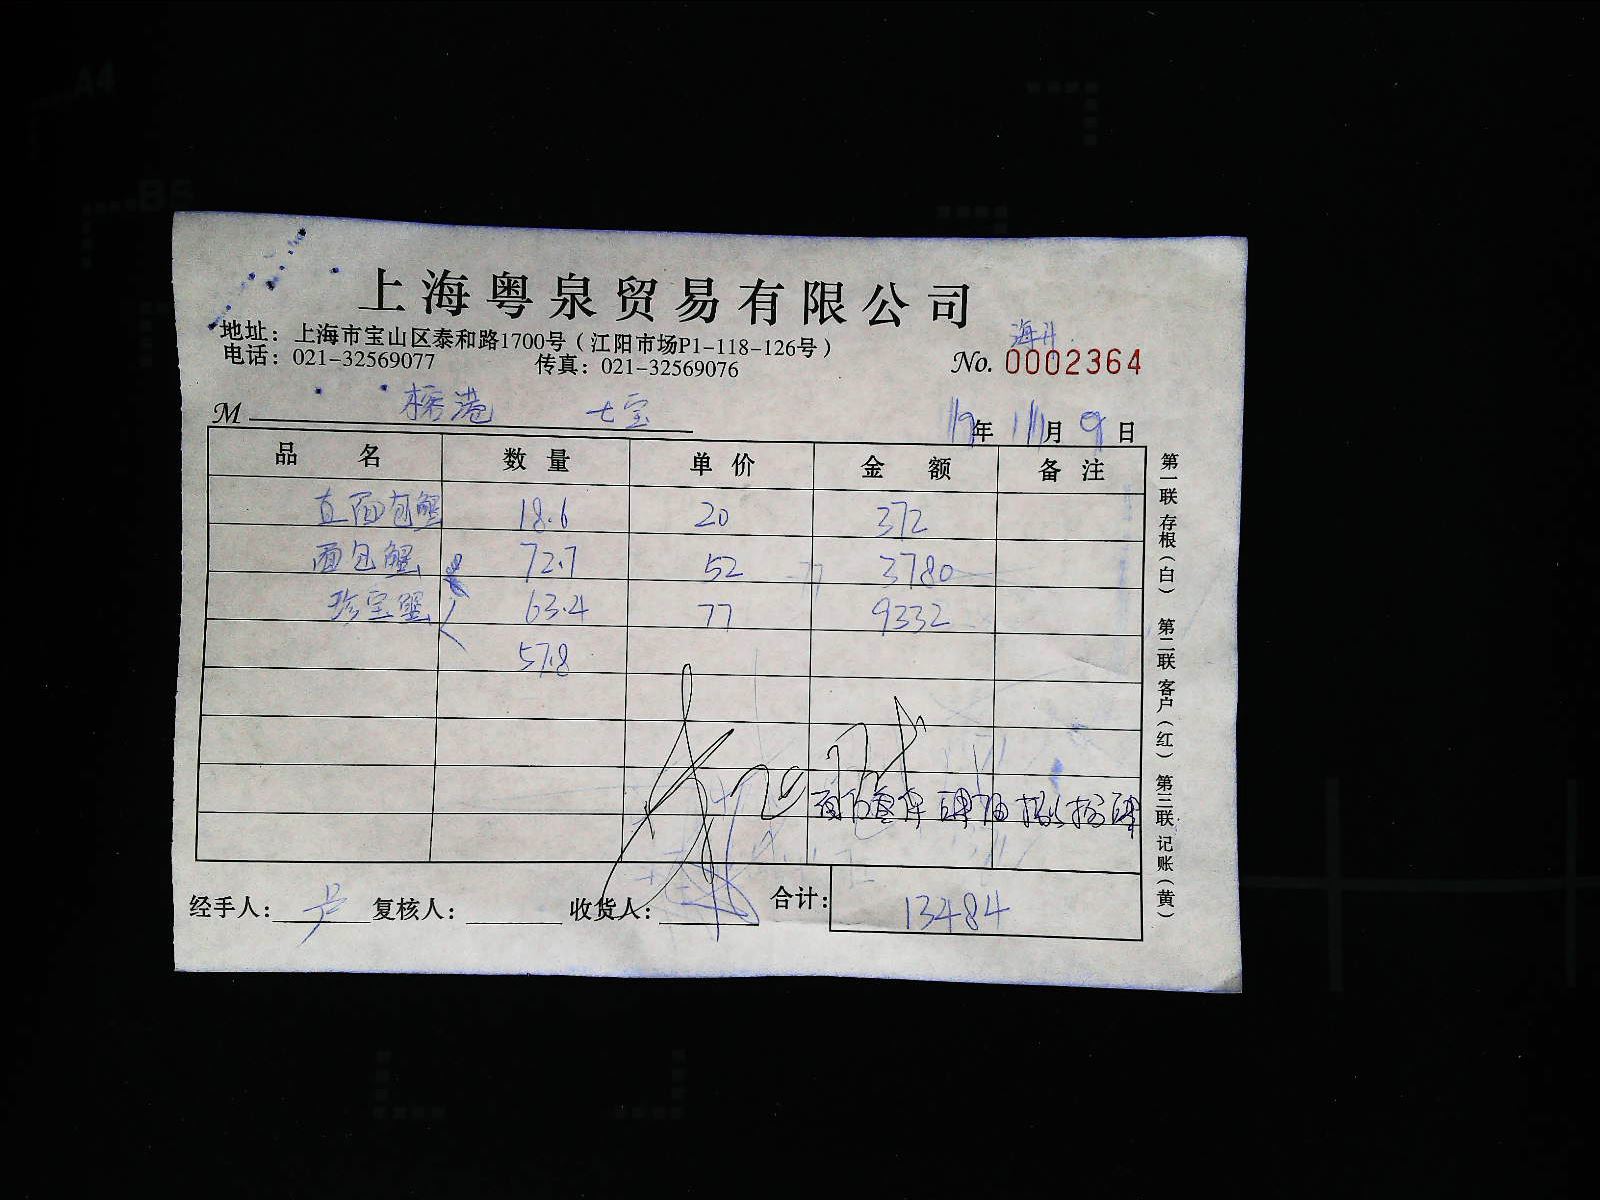 上海粤泉贸易有限公司
地址：上海市宝山区泰和路1700号（江阳市场P1-118-126号）
电话：021-32569077 传真：021-32569076
No. 0002364
M 七宝
19年 11月 9日
品名 数量 单价 金额 备注
直面包蟹 18.6 20 372
面包蟹 72.7 52 3780
珍宝蟹 63.4 77 9332
57.8
经手人： 复核人： 收货人： 合计： 13484
第一联 存根（白） 第二联 客户（红） 第三联 记账（黄）